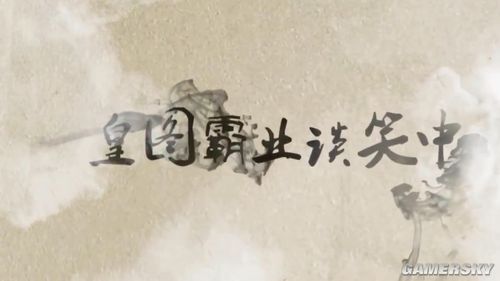 皇图霸业谈笑中
GAMERSKY